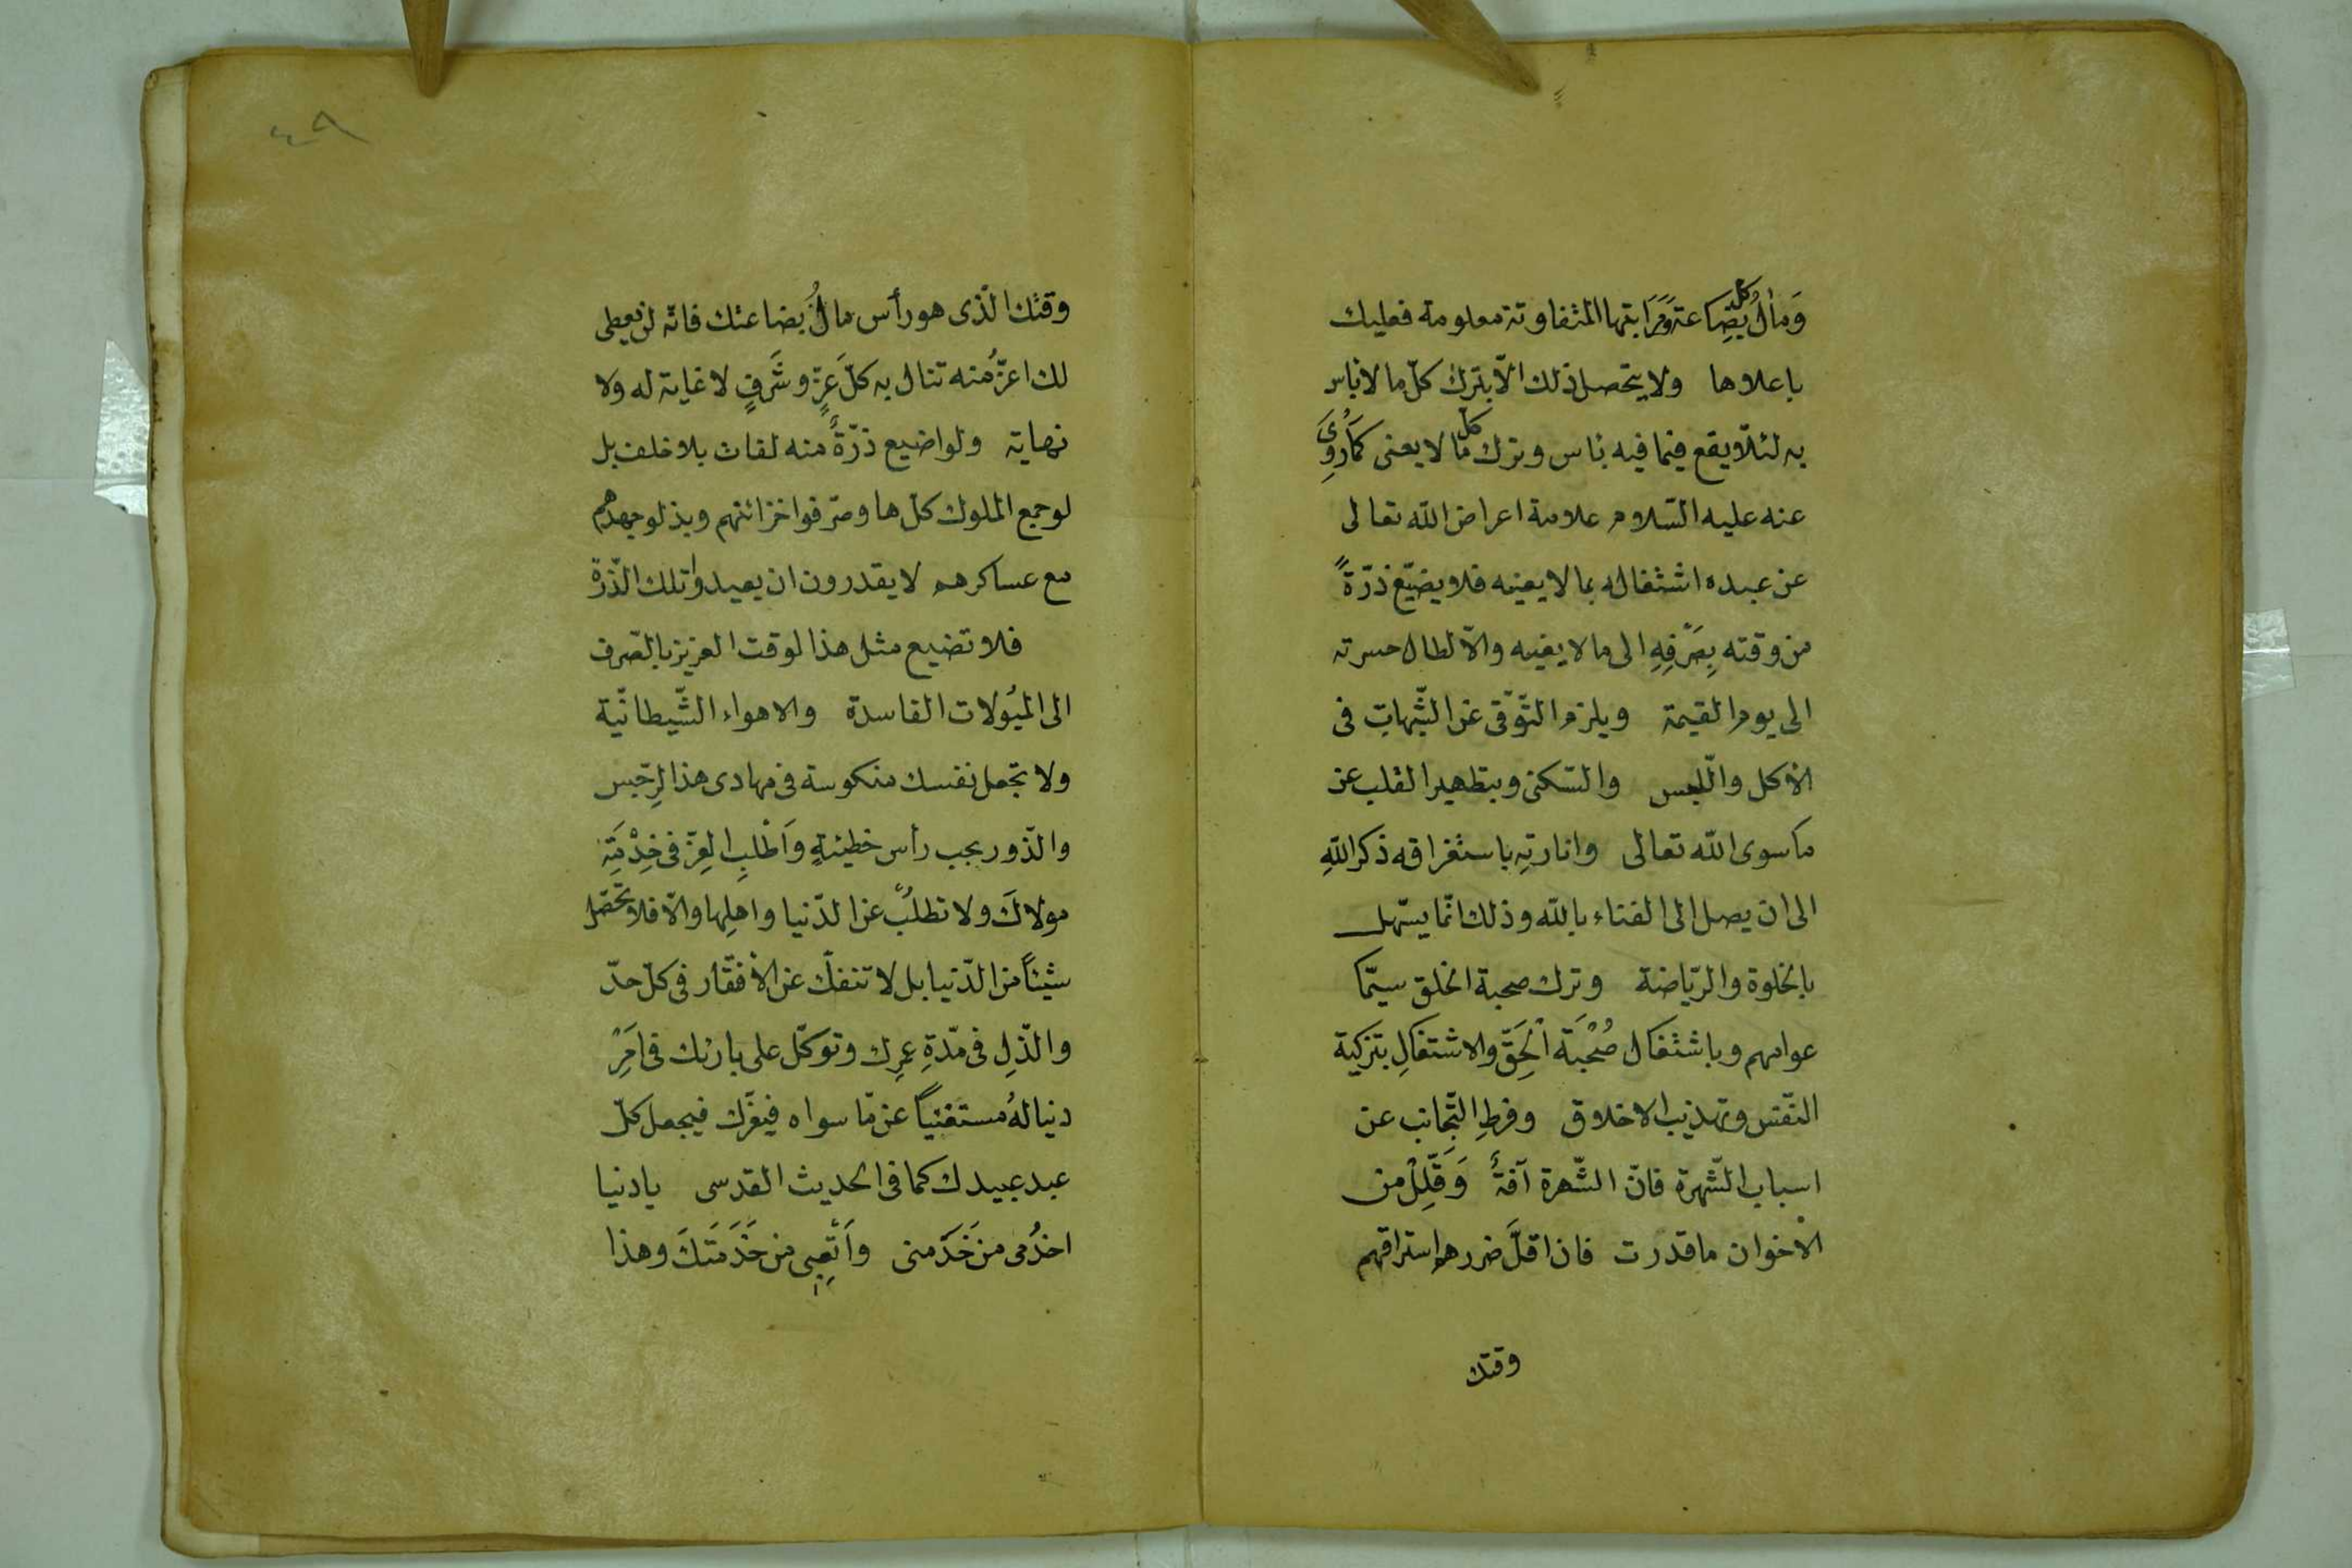 وَمالُ كل بِضَاعة وَمَرَاتبها المتفاوتة معلومة فعليك
باعلاها ولا يتحصل ذلك الّا بترك كلّ ما لا باس
به لئلّا يقع فيما فيه باس وترك كلّ ما لا يعنى كمَا رُوِىَ
عنه عليه السّلام علامة اعراض الله تعالى
عن عبده اشتغاله بما لا يعنيه فلا يضيّع ذرّةً
من وقته بِصَرْفِهِ الى ما لا يعنيه والّا لطال حسرته
الى يوم القيمة ويلزم التّوقّى عن الشّبهات فى
الأكل واللّبس والسّكنى وبتطهير القلب عن
ما سوى الله تعالى وانارتِهِ باستغراقه ذكر اللهِ
الى ان يصل الى الفناء بالله وذلك انّما يسّهل
بالخلوة والرّياضة وترك صحبة الخلق سيّما
عوامهم وباشتغال صُحْبَة الْحَقّ والاشتغالِ بتزكية
النّفس وتهذيب الاخلاق وفرطِ التّجانب عن
اسباب الشّهرة فانّ الشّهرة آفةٌ وَقَلِّلْ من
الأخوان ما قدرت فان اقلَّ ضررهم استراقهم
وقتك
٤٨
وقتك الّذى هو رأس مالُ بضاعتك فانّه لن يعطى
لك اعزُّ منه تنال به كلّ عَزٍّ وشَرَفٍ لا غاية له ولا
نهاية ولو اضيع ذرّةً منه لفات بلا خلف بل
لو جمع الملوك كلّها وصرّفوا خزائنهم وبذلو جهدهم
مع عساكرهم لا يقدرون ان يعيدوا تلك الذّرة
فلا تضيع مثل هذا لوقت العزيز بالصّرف
الى الميُولات الفاسدة والاهواء الشّيطانّية
ولا تجعل نفسك منكوسة فى مهادى هذا لرِجّس
والذّور بحب رأس خطيئةٍ وَاَطْلبِ العِزّ فى خِدْمَتِهِ
مولاكَ ولا تطلبُ عن الدّنيا واهلِها والّا فلا تحصّل
شيئاً من الدّنيا بل لا تنفلّ عن الأفقّار فى كلّ حدّ
والذّلِ فى مدّةِ عمرِك وتوكّل على بارئك فى اَمْرِ
دنيا لهُ مستغنياً عن مّا سواه فيغرّك فيجعل كلّ
عبد عبيدك كما فى الحديث القدسى يا دنيا
اخدُمى من خَدَمنى واَتْعِبِى من خَدَمَتكَ وهذا